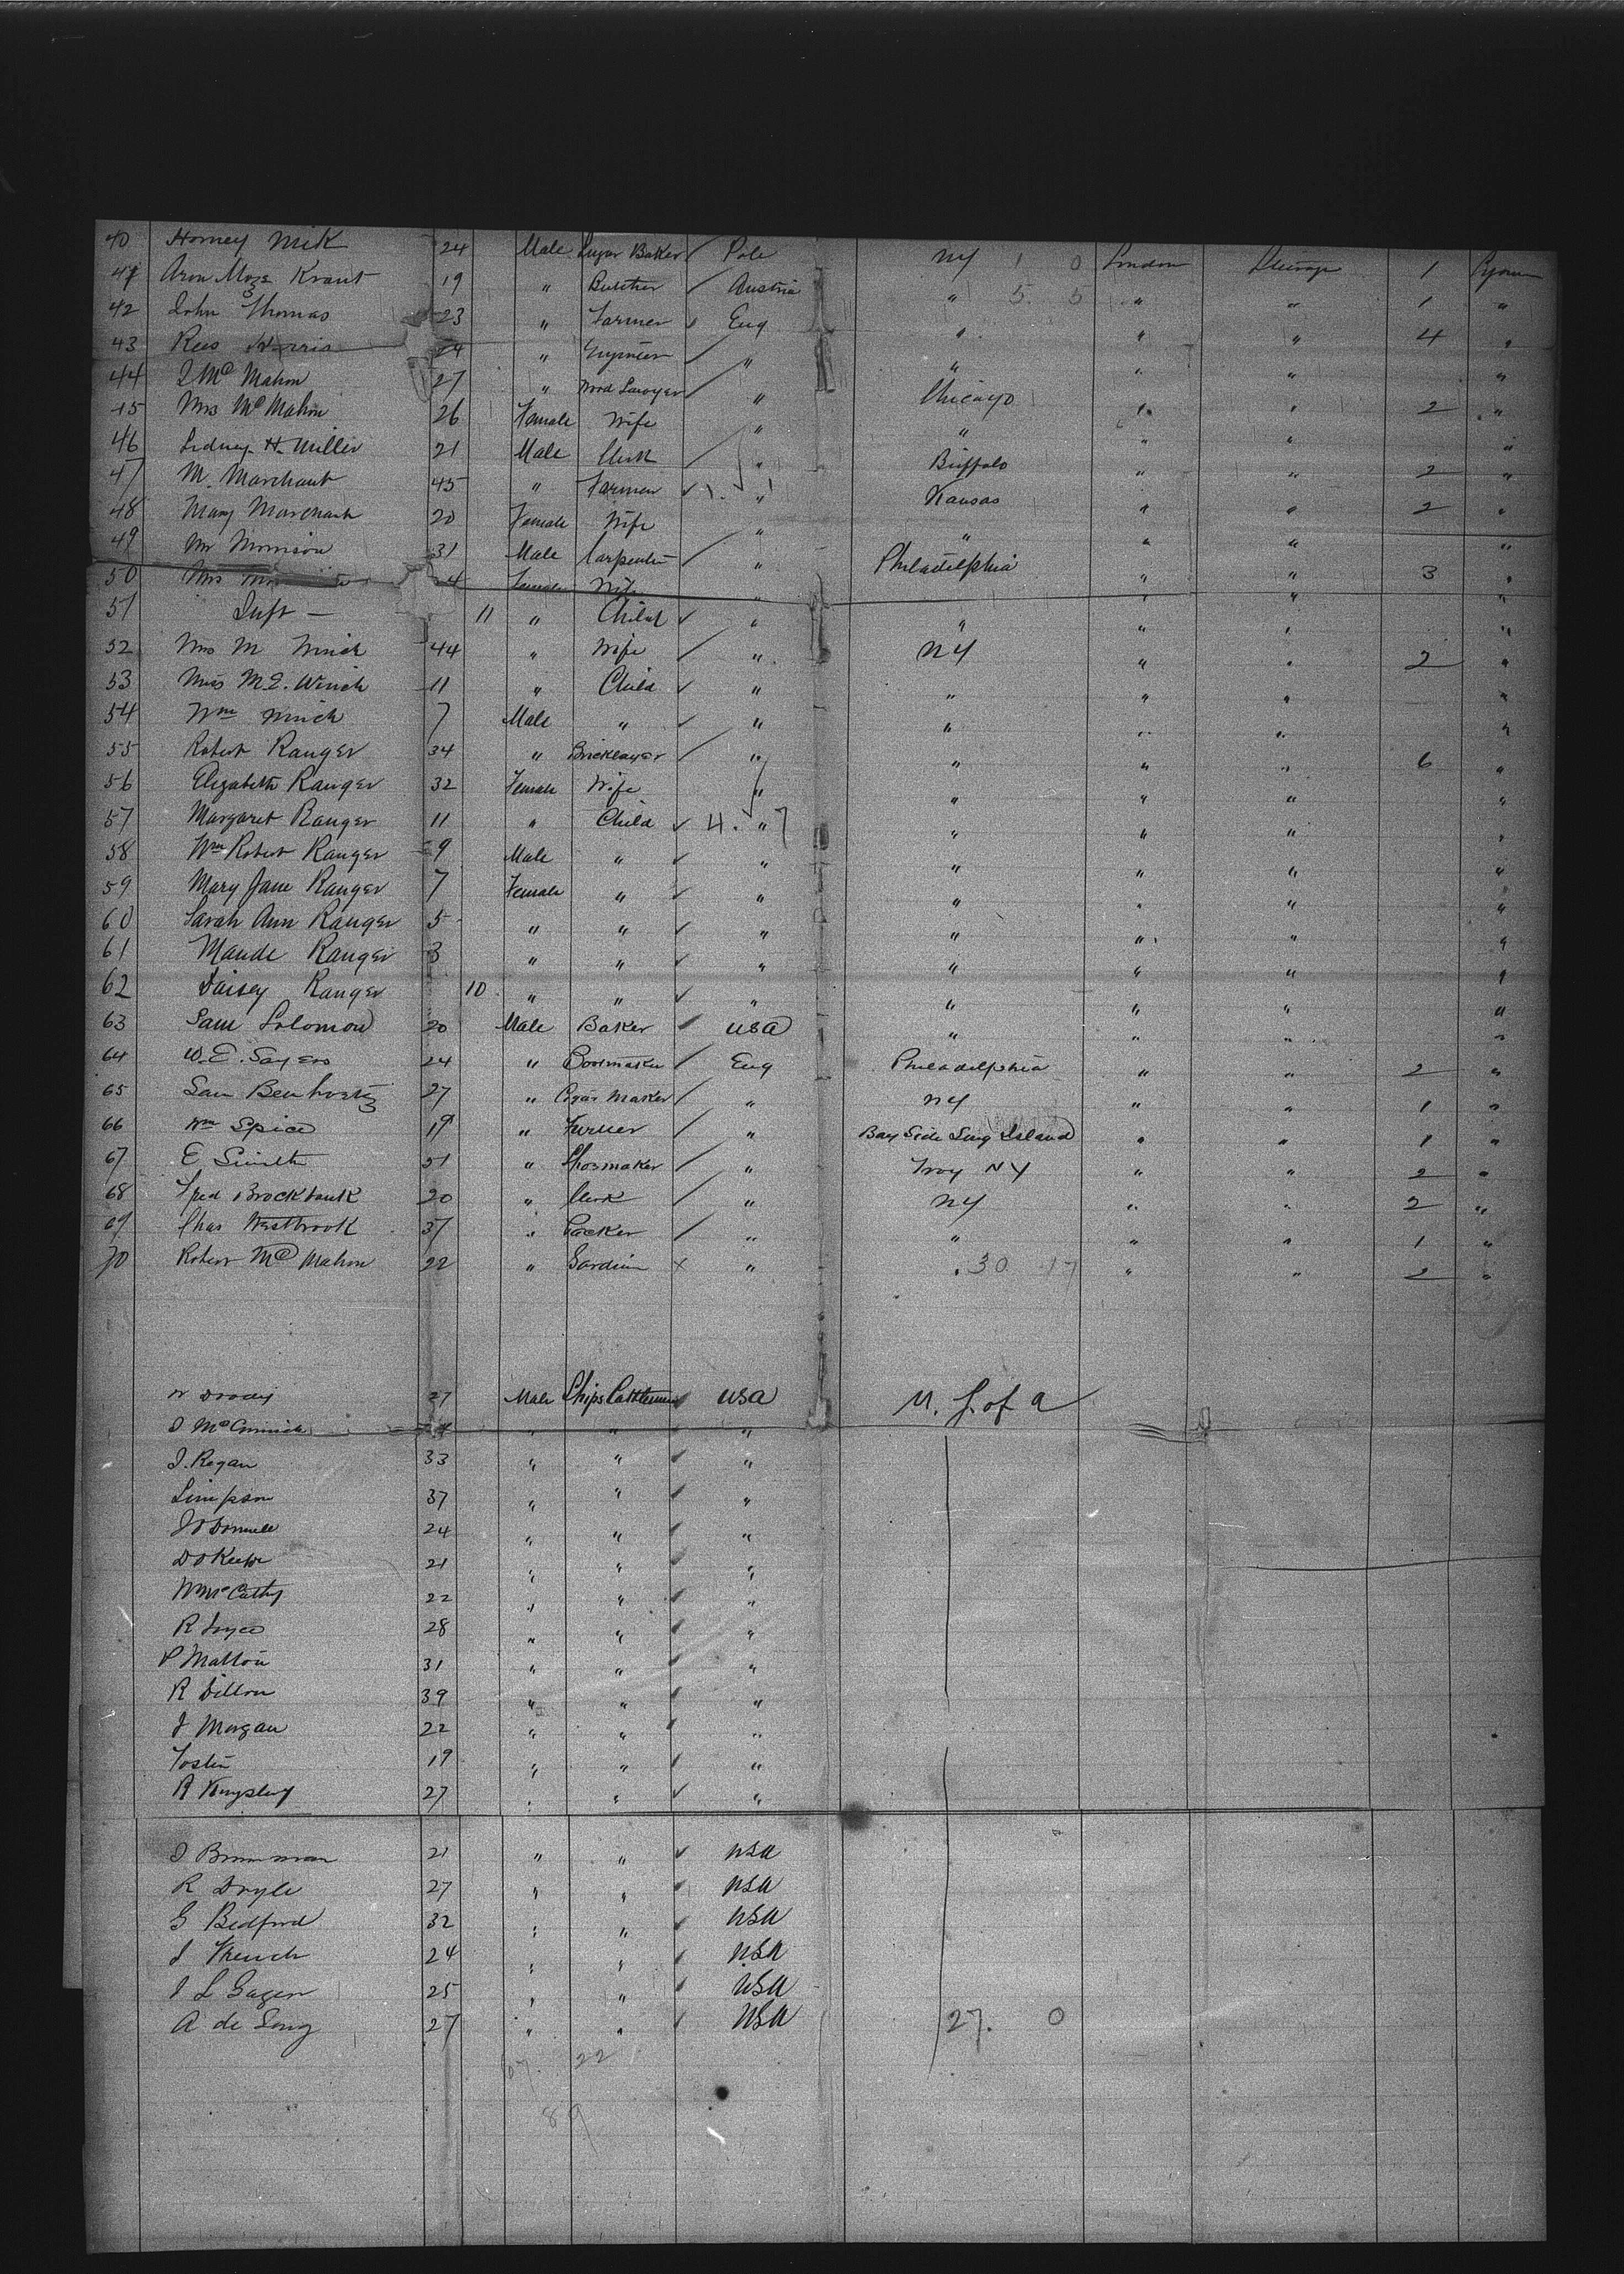 40 Horney Mik 24 Male Sugar Baker / Pole NY 1 0 London Steerage 1
41 Aron Moze Kraut 19 " Butcher / Austria " 5. 5 " " 1 "
42 John Thomas 23 " Farmer Eng " " " 4 "
43 Rees Harris 24 " / " " " " "
44 J McMahon 27 " Wood Sawyer / " Chicago " " 2 "
45 Mrs McMahon 26 Female Wife " " " " "
46 Sidney H. Miller 21 Male Clerk / " Buffalo " " 2 "
47 M. Marchant 45 " Farmer ✓ 1. 1 " Kansas " " 2 "
48 Mary Marchant 20 Female Wife " " " " "
49 Mr Morrison 31 Male Carpenter / " Philadelphia " " 3 "
50 Mrs 4 Female Wife " " " "
51 Inft — 11 " Child ✓ " " " " "
52 Mrs M Winch 44 " Wife / " NY " " 2 "
53 Miss M.E. Winch 11 " Child ✓ " " " " "
54 Wm Winch 7 Male " ✓ " " " " "
55 Robert Ranger 34 " Bricklayer / " " " " 6 "
56 Elizabeth Ranger 32 Female Wife " " " " "
57 Margaret Ranger 11 " Child ✓ 4. " 7 " " " "
58 Wm Robert Ranger 9 Male " ✓ " " " " "
59 Mary Jane Ranger 7 Female " ✓ " " " " "
60 Sarah Ann Ranger 5 " " ✓ " " " " "
61 Maude Ranger 3 " " ✓ " " " " "
62 Daisey Ranger 10 " " ✓ " " " " "
63 Sam Solomon 20 Male Baker / USA " " " "
64 W.E. Sayers 24 " Bootmaker / Eng Philadelphia " " 2 "
65 Sam 27 " Cigar Maker / " NY " " 1 "
66 Wm Spice 19 " Turner / " Bay Side Long Island " " 1 "
67 E Smith 51 " Shoemaker / " Troy NY " " 2 "
68 Fred Brockbank 20 " Clerk / " NY " " 2 "
69 Chas Westbrook 37 " Packer / " " " " 1 "
70 Robert McMahon 22 " x " " 30 17 " " 2 "
W Doody 27 Male Ships Cattlemen USA U. S. of A
J McCormick " " "
J. Regan 33 " " "
Simpson 37 " " "
J O'Donnell 24 " " "
D O'Keefe 21 " " "
Wm McCathy 22 " " "
R Joyce 28 " " "
P Mallon 31 " " "
R Dillon 39 " " "
J Morgan 22 " " "
19 " " "
R Kingsley 27 " " ✓ "
J 21 " " ✓ USA
R Doyle 27 " " USA
G Bedford 32 " " USA
J French 24 " " USA
J L 25 " " USA
A de Long 27 " " USA 27. 0
67. 22
89